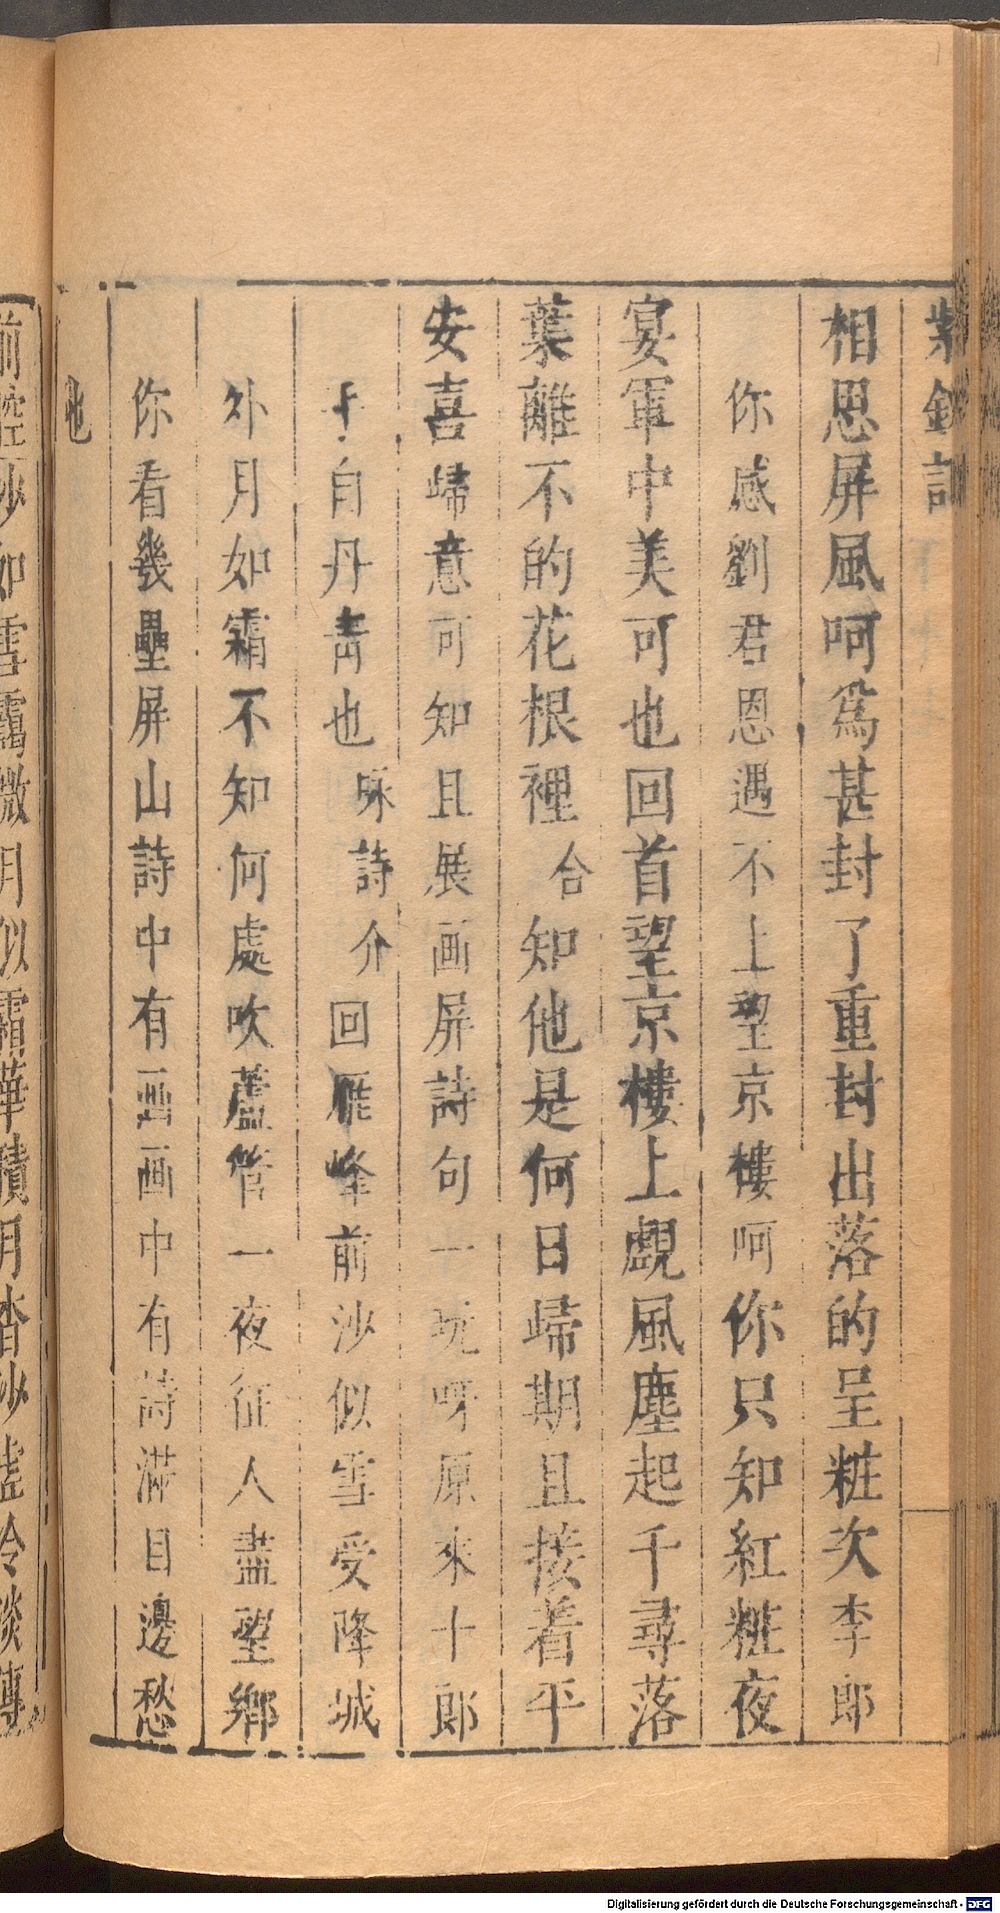 紫釵記
相思屏風呵爲甚封了重封出落的呈粧次李郎
你感劉君恩遇不上望京樓呵你只知紅粧夜
宴軍中美可也回首望京樓上覷風塵起千尋落
葉離不的花根裡合知他是何日歸期且接着平
安喜歸意可知且展画屏詩句一玩呀原來十郎
手自丹青也脉詩介回雁峰前沙似雪受降城
外月如霜不知何處吹蘆管一夜征人盡望鄉
你看幾壘屏山詩中有画画中有詩滿目邊愁
也
前腔沙如雪靄微月似霜華積月杳沙虛冷淡傳
Digitalisierung gefördert durch die Deutsche Forschungsgemeinschaft - DFG